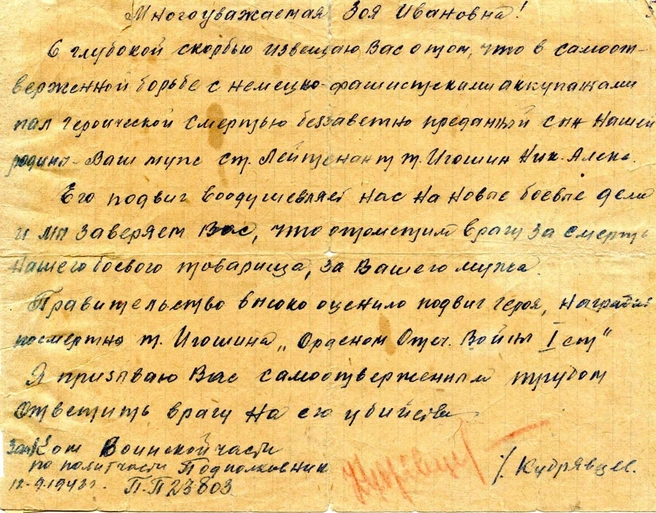 Многоуважаемая Зоя Ивановна!
С глубокой скорбью извещаю Вас о том, что в самоот-
верженной борьбе с немецко-фашистскими аккупантами
пал героической смертью беззаветно преданый сын нашей
родины - Ваш муж ст. Лейтенант т. Игошин Ник. Алекс.
Его подвиг воодушевляет нас на новые боевые дела
и мы заверяем Вас, что отомстим врагу за смерть
нашего боевого товарища, за Вашего мужа.
Правительство высоко оценило подвиг героя, наградив
посмертно т. Игошина „Орденом Отеч. Войны I ст"
Я призываю Вас самоотверженным трудом
ответить врагу на его убийства
Зам Ком Воинской части
по политчасти Подполковник
12.9.1943г. П.П 23803 /Кудрявцев.